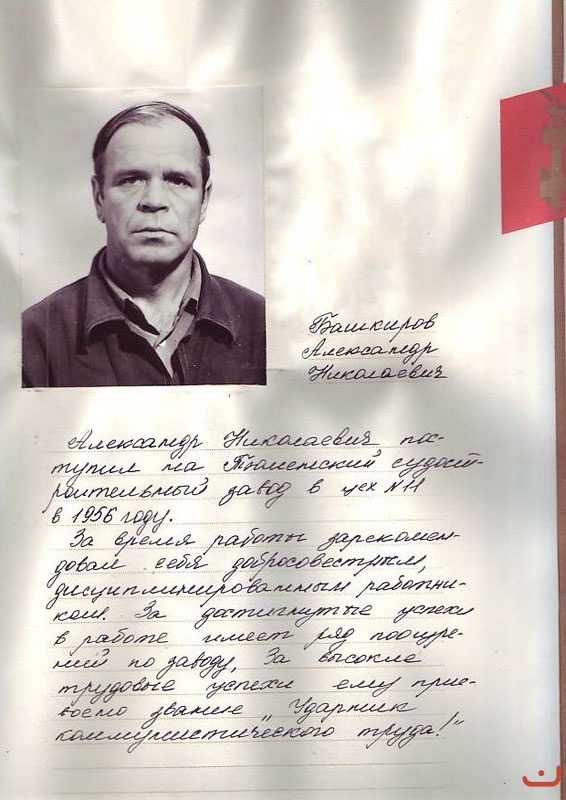 Башкиров
Александр
Николаевич
Александр Николаевич пос-
тупил на Тюменский судост-
роительный завод в цех №11
в 1956 году.
За время работы зарекомен-
довал себя добросовестным,
дисциплинированным работни-
ком. За достигнутые успехи
в работе имеет ряд поощре-
ний по заводу. За высокие
трудовые успехи ему прис-
воено звание „Ударник
коммунистического труда!"